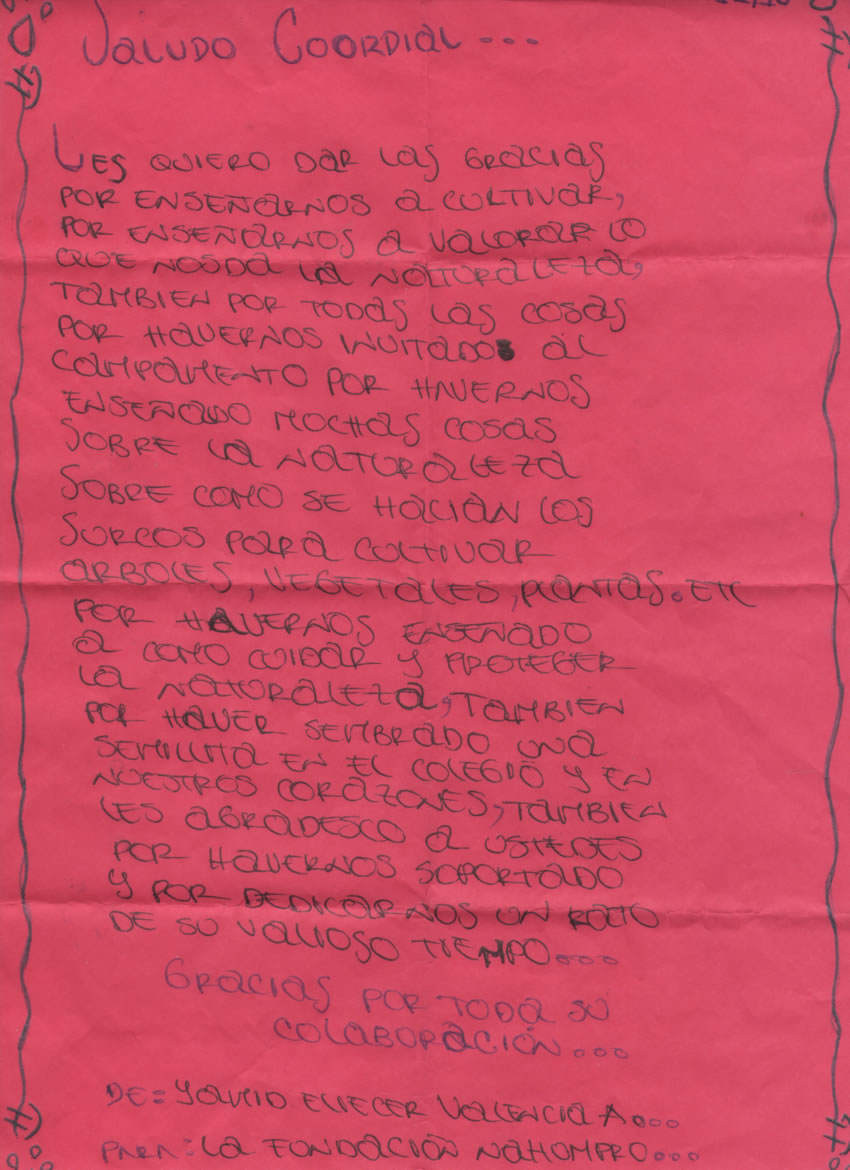 Saludo Coordial...
Les quiero dar las gracias
por enseñarnos a cultivar,
por enseñarnos a valorar lo
que nos da la naturaleza,
tambien por todas las cosas
por havernos invitados al
campamento por havernos
enseñado muchas cosas
sobre la naturaleza
sobre como se hacian los
surcos para cultivar
arboles, vegetales, plantas. etc
por havernos enseñado
a como cuidar y proteger
la naturaleza, tambien
por haver sembrado una
semillita en el colegio y en
nuestros corazones, tambien
les agradesco a ustedes
por havernos soportado
y por dedicarnos un rato
de su valioso tiempo....
Gracias por toda su
colaboración...
De= Eliecer Valencia A...
Para: La Fundación Nahompro...